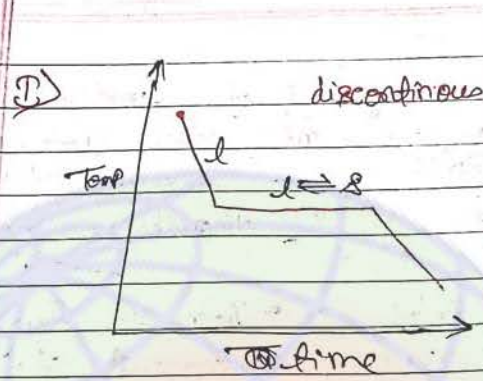 I)
discontinious
Temp
l
l ⇌ S
time